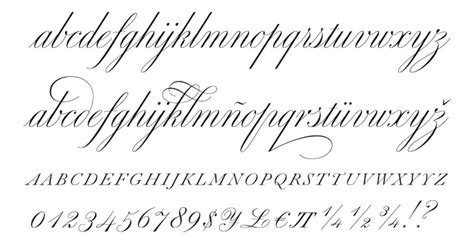 abcdefghijklmnopqrstuvwxyz
abcdefghijklmñopqrstüvwxyž
AABCDEFGHIJKLMNOPQRSTUVWXYZ
0123456789$¥£€π¼½¾!?